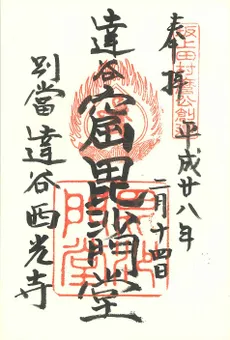 奉拝
坂上田村麿公創建
平成廿八年
二月十四日
達谷窟毘沙門堂
別當達谷西光寺